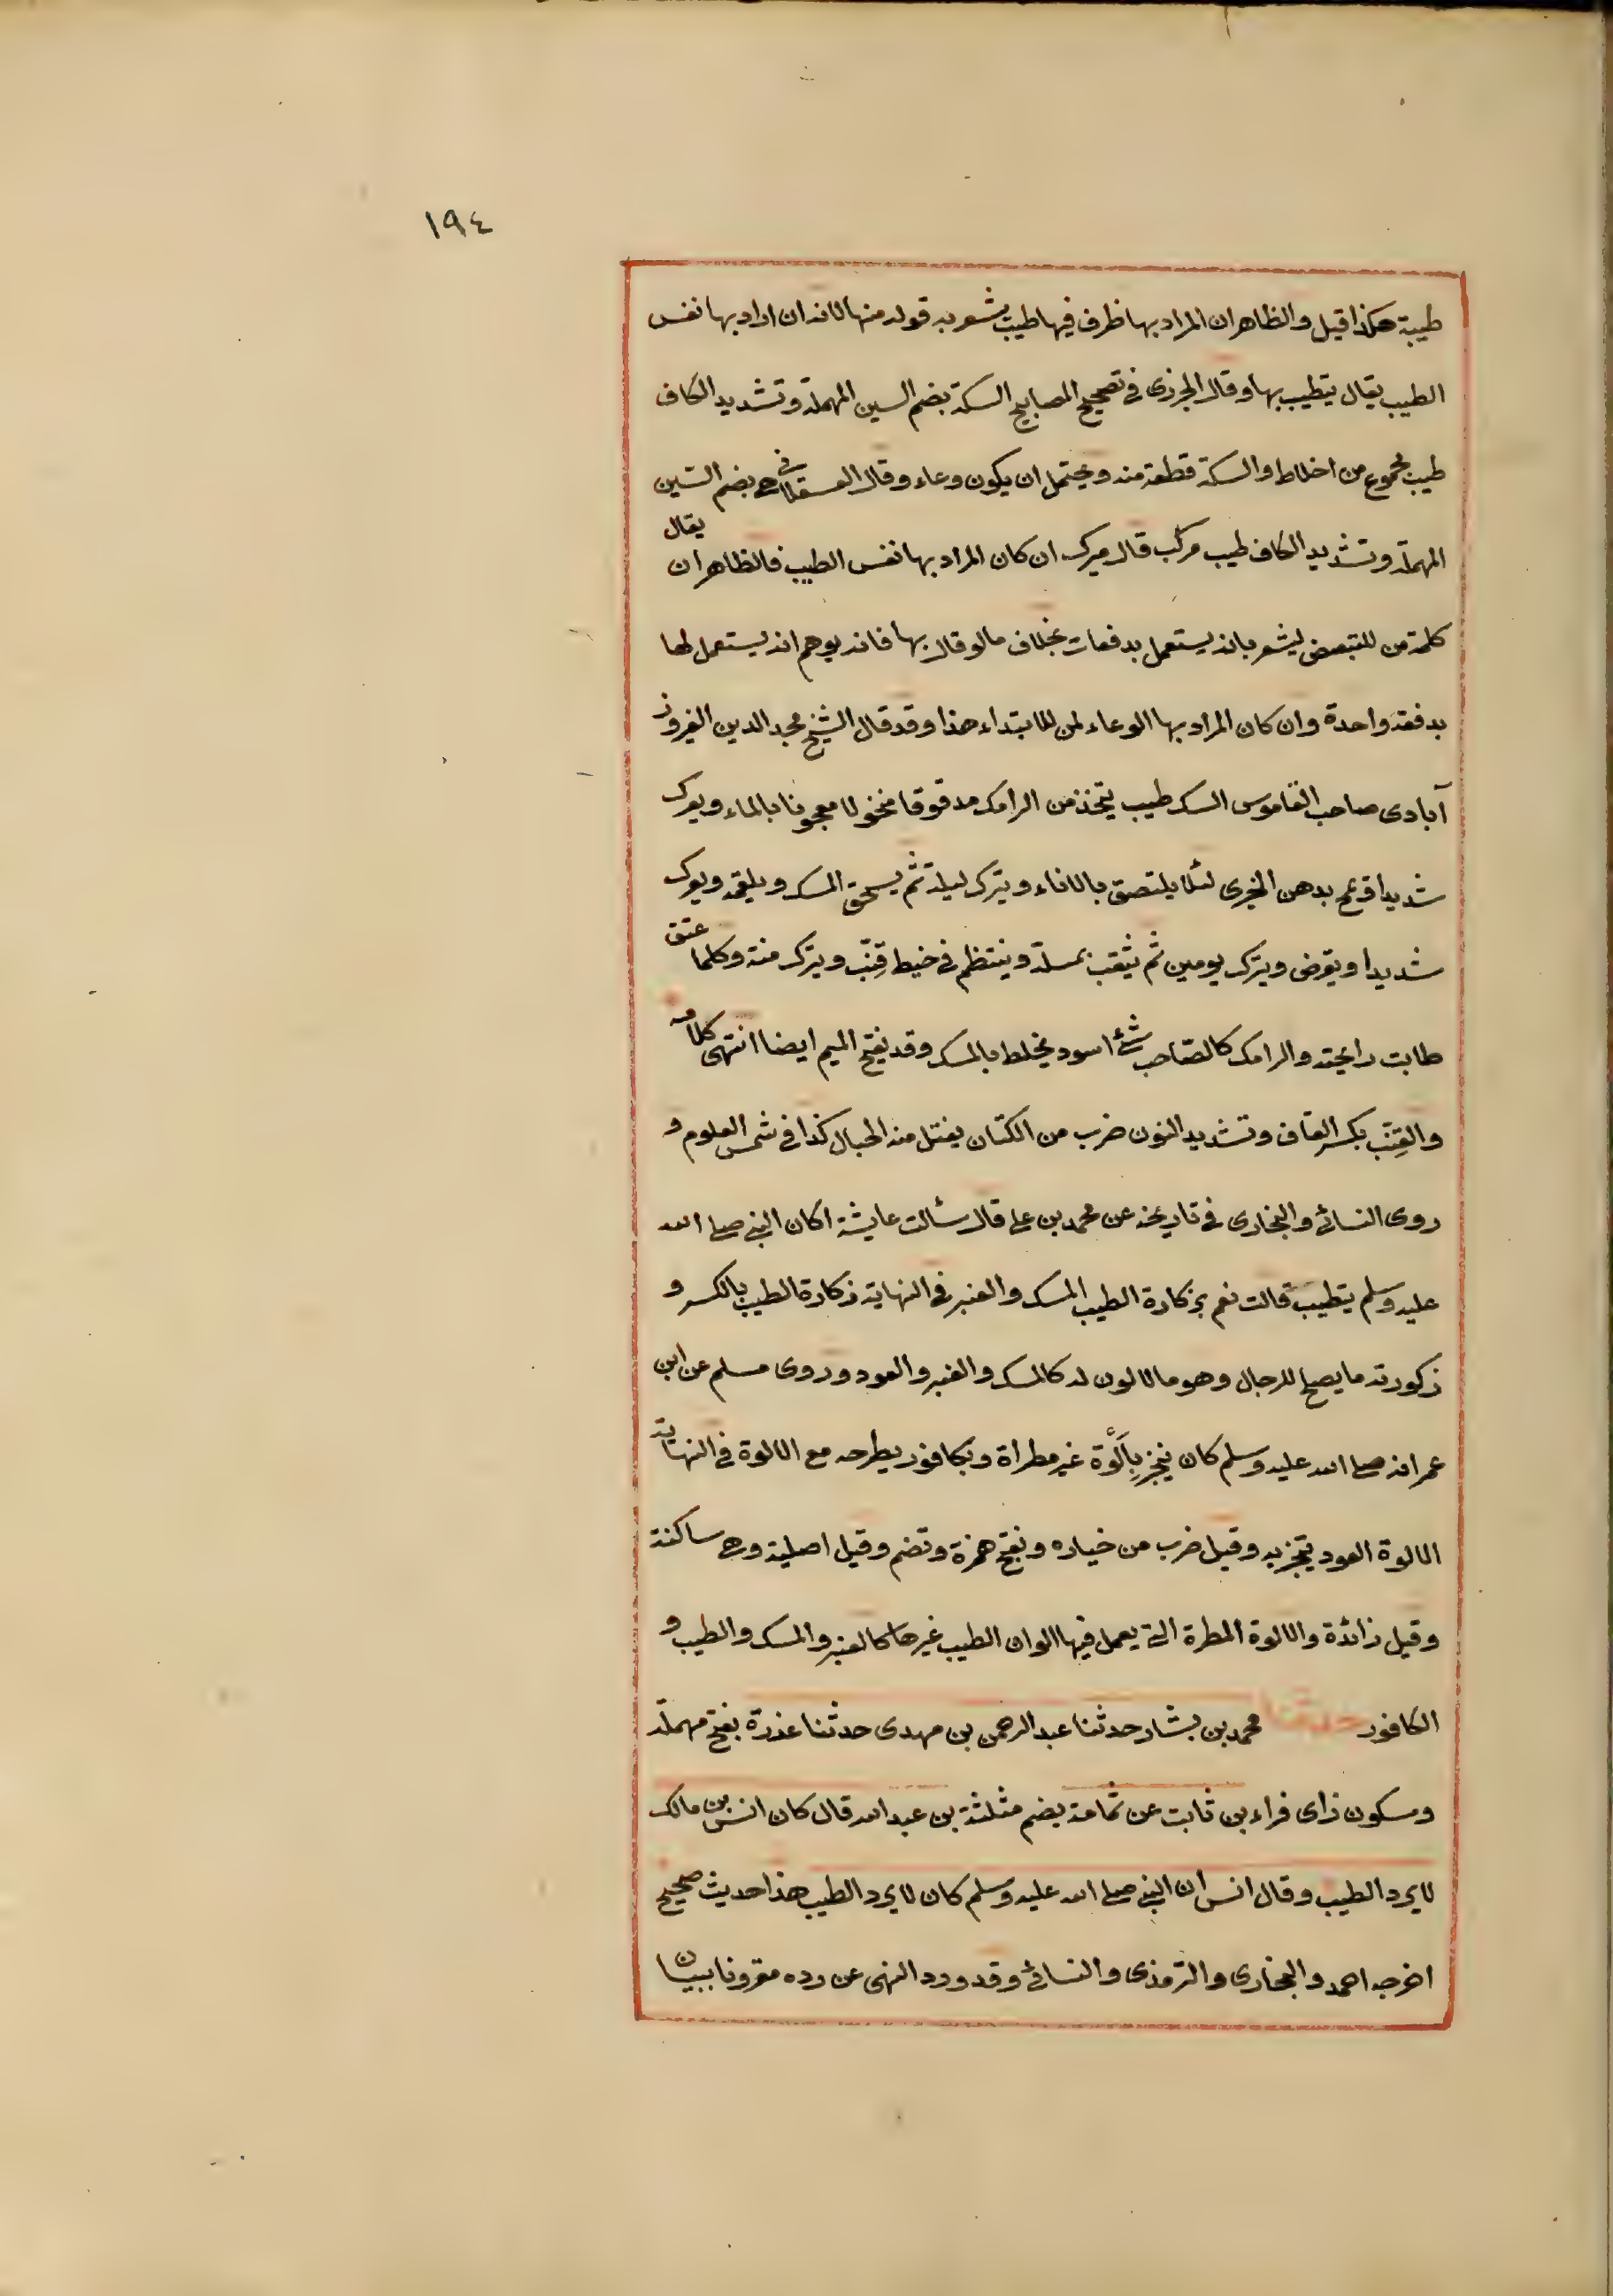 ١٩٤
طيبة هكذا قيل والظاهر ان المراد بها ظرف فيها طيب يشعر به قوله منها لانه ان اراد بها نفس
الطيب يقال يتطيب بها وقال الجزرى فى تصحيح المصابيح السكة بضم السين المهملة وتشديد الكاف
طيب مجموع من اخلاط والسكة قطعة منه ويحتمل ان يكون وعاء وقال العسقلانى هى بضم السين
المهملة وتشديد الكاف طيب مركب قال ميرك ان كان المراد بها نفس الطيب فالظاهر ان يقال
كلمة من للتبعيض ليشعر بانه يستعمل بدفعات بخلاف ما لو قال بها فانه يوهم انه يستعمل لها
بدفعة واحدة وان كان المراد بها الوعاء لمن للابتداء هذا وقد قال الشيخ مجد الدين الفيروز
آبادى صاحب القاموس السك طيب يتخذ من الرامك مدقوقا منخولا معجونا بالماء ويعرك
شديدا ويمسح بدهن الخيرى لئلا يلتصق بالاناء ويترك ليلة ثم يسحق المسك ويلقمه ويعرك
شديدا ويقرض ويترك يومين ثم يثقب بمسلة وينتظم فى خيط قنّب ويترك سنة وكلما عتق
طابت رايحته والرامك كالصاحب شئ اسود يخلط بالمسك وقد يفتح الميم ايضا انتهى كلامه
والقِنّب بكسر القاف وتشديد النون ضرب من الكتان يفتل منه الحبال كذا فى شمس العلوم و
روى النسائى والبخارى فى تاريخه عن محمد بن على قال سئالت عايشة اكان النبى صلى الله
عليه وسلم يتطيب قالت نعم بذكارة الطيب المسك والعنبر فى النهاية ذكارة الطيب بالكسر و
ذكورته ما يصلح للرجال وهو ما لا لون له كالمسك والعنبر والعود وروى مسلم عن ابن
عمر انه صلى الله عليه وسلم كان يتبخر بِأَلُوّة غير مطراة وبكافور يطرحه مع الالوة فى النهاية
الالوة العود يتبخر به وقيل ضرب من خياره وبفتح همزة وتضم وقيل اصلية وهى ساكنة
وقيل زائدة والالوة المطرة التى يعمل فيها الوان الطيب غيرها كالعنبر والمسك والطيب و
الكافور حدثنا محمد بن بشار حدثنا عبد الرحمن بن مهدى حدثنا عذرة بفتح مهملة
وسكون زاى فراء بن ثابت عن ثمامة بضم مثلثة بن عبد الله قال كان انس بن مالك
لا يرد الطيب وقال انس ان النبى صلى الله عليه وسلم كان لا يرد الطيب هذا حديث صحيح
اخرجه احمد والبخارى والترمذى والنسائى وقد ورد النهى عن رده مقرونا ببيان